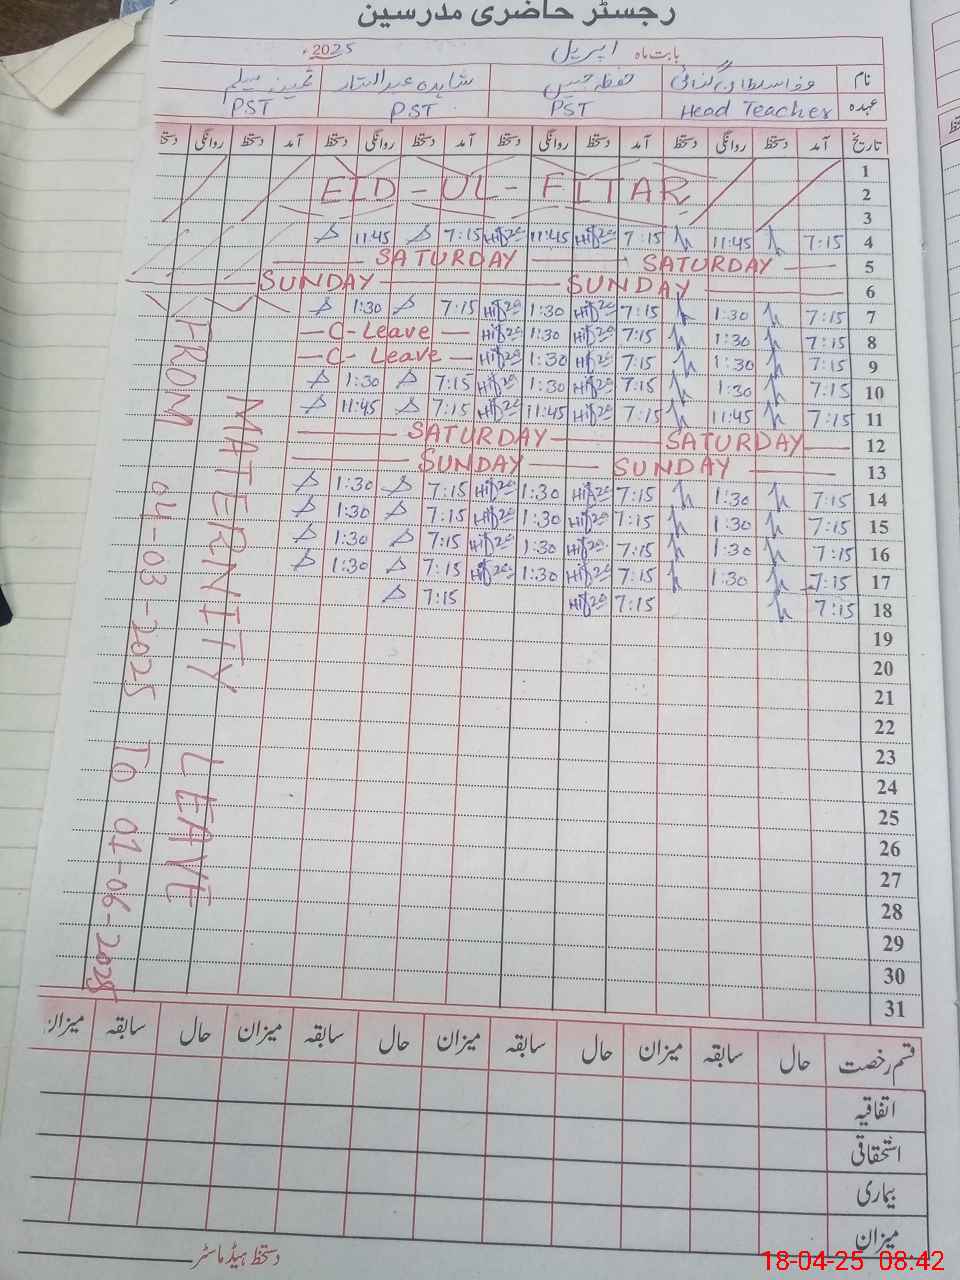 رجسٹر حاضری مدرسین
بابت ماہ اپریل 2025ء
نام حفظہ حسین شاہدہ عبدالستار ثمینہ سلیم
عہدہ Head Teacher PST PST PST
تاریخ آمد دستخط روانگی دستخط آمد دستخط روانگی دستخط آمد دستخط روانگی دستخط آمد دستخط روانگی دستخط
1
2 EID-UL-FITAR
3
4 7:15 11:45 7:15 11:45 7:15 11:45
5 SATURDAY SATURDAY
6 SUNDAY SUNDAY
7 7:15 1:30 7:15 1:30 7:15 1:30
8 7:15 1:30 7:15 1:30 C-Leave
9 7:15 1:30 7:15 1:30 C-Leave
10 7:15 1:30 7:15 1:30 7:15 1:30
11 7:15 11:45 7:15 11:45 7:15 11:45
12 SATURDAY SATURDAY
13 SUNDAY SUNDAY
14 7:15 1:30 7:15 1:30 7:15 1:30
15 7:15 1:30 7:15 1:30 7:15 1:30
16 7:15 1:30 7:15 1:30 7:15 1:30
17 7:15 1:30 7:15 1:30 7:15 1:30
18 7:15 7:15 7:15
19
20
21
22
23
24
25
26
27
28
29
30
31
MATERNITY LEAVE
FROM 04-03-2025 TO 01-06-2025
قسم رخصت حال سابقہ میزان حال سابقہ میزان حال سابقہ میزان حال سابقہ میزان
اتفاقیہ
استحقاقی
بیماری
میزان
دستخط ہیڈ ماسٹر
18-04-25 08:42